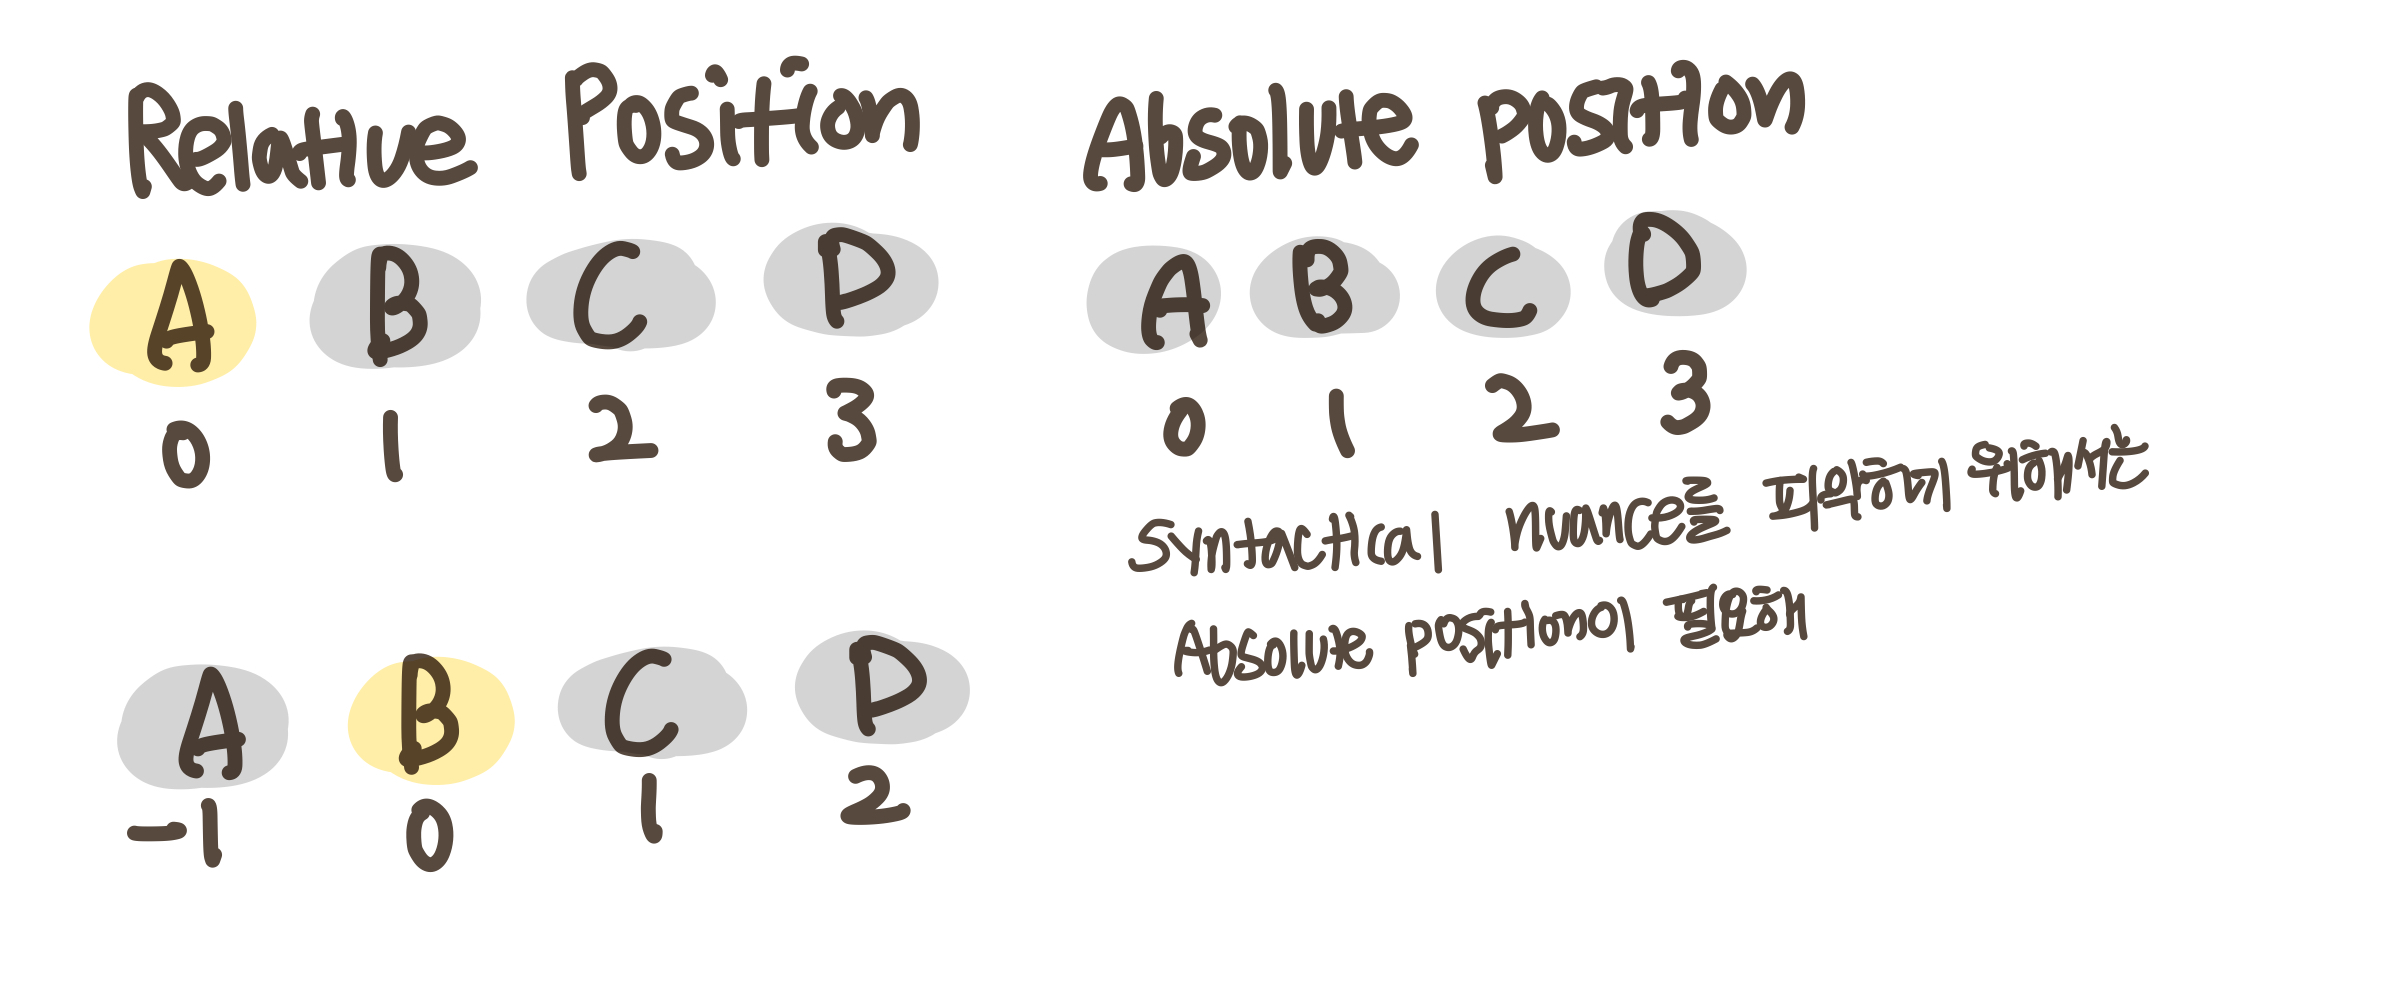 Relative Position
A B C D
0 1 2 3
A B C D
-1 0 1 2
Absolute position
A B C D
0 1 2 3
Syntactical nuance를 파악하기 위해서는
Absolute position이 필요해